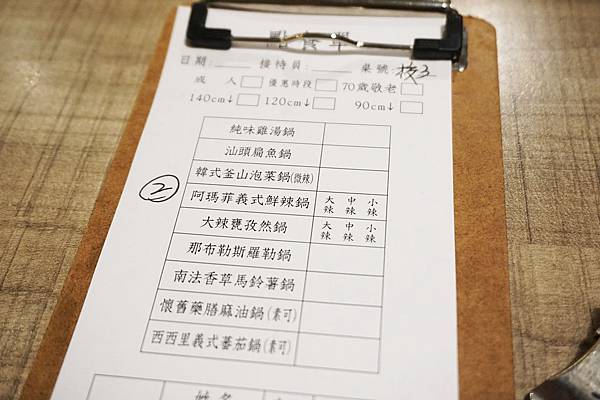 點食單
日期:______ 接待員:______ 桌號:
成人□ 優惠時段□ 70歲敬老□
140cm↓□ 120cm↓□ 90cm↓□
純味雞湯鍋
汕頭扁魚鍋
韓式釜山泡菜鍋(微辣)
②
阿瑪菲義式鮮辣鍋 大辣 中辣 小辣
大辣甕孜然鍋 大辣 中辣 小辣
那布勒斯羅勒鍋
南法香草馬鈴薯鍋
懷舊藥膳麻油鍋(素可)
西西里義式蕃茄鍋(素可)